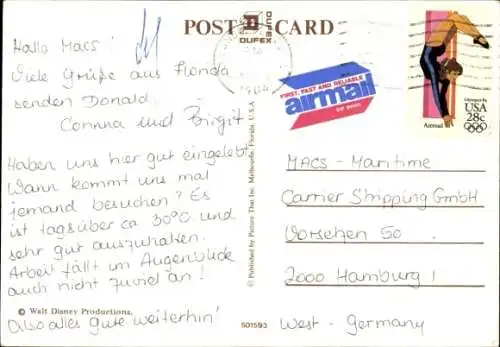 POST CARD
DUFEX
DUFEX
1984
Hallo Macs!
Viele Grüße aus Florida
senden Donald,
Corinna und Birgit
Haben uns hier gut eingelebt.
Wann kommt uns mal
jemand besuchen? Es
ist tagsüber ca 30°C und
sehr gut auszuhalten.
Arbeit fällt im Augenblick
auch nicht zuviel an!
© Walt Disney Productions.
Also alles gute weiterhin!
© Published by Picture That Inc. Melbourne, Florida. U.S.A.
501593
FIRST, FAST AND RELIABLE
airmail
par avion
Olympics 84
USA
28c
Airmail
MACS - Maritime
Carrier Shipping GmbH
Vorsetzen 50
2000 Hamburg 1
West - Germany